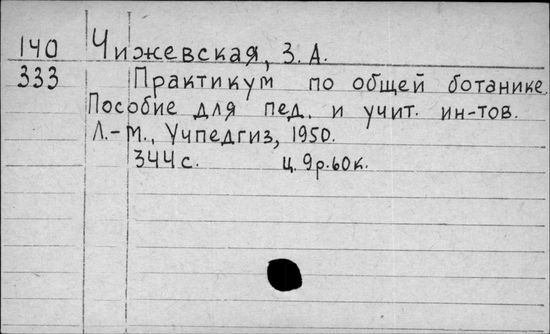 140 Чижевская, З. А.
333 Практикум по общей ботанике.
Пособие для пед. и учит. ин-тов.
Л.-М., Учпедгиз, 1950.
344 с. ц. 9р.60к.